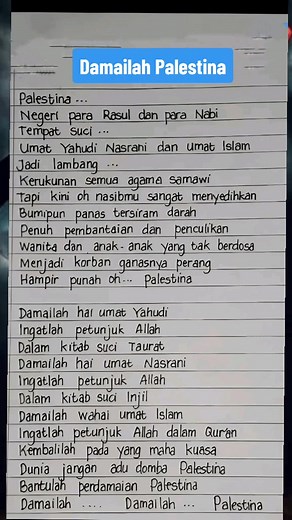 Damailah Palestina
Palestina ...
Negeri para Rasul dan para Nabi
Tempat suci ...
Umat Yahudi Nasrani dan umat Islam
Jadi lambang ...
Kerukunan semua agama samawi
Tapi kini oh nasibmu sangat menyedihkan
Bumipun panas tersiram darah
Penuh pembantaian dan penculikan
Wanita dan anak-anak yang tak berdosa
Menjadi korban ganasnya perang
Hampir punah oh... Palestina
Damailah hai umat Yahudi
Ingatlah petunjuk Allah
Dalam kitab suci Taurat
Damailah hai umat Nasrani
Ingatlah petunjuk Allah
Dalam kitab suci Injil
Damailah wahai umat Islam
Ingatlah petunjuk Allah dalam Qur'an
Kembalilah pada yang maha kuasa
Dunia jangan adu domba Palestina
Bantulah perdamaian Palestina
Damailah .... Damailah ... Palestina